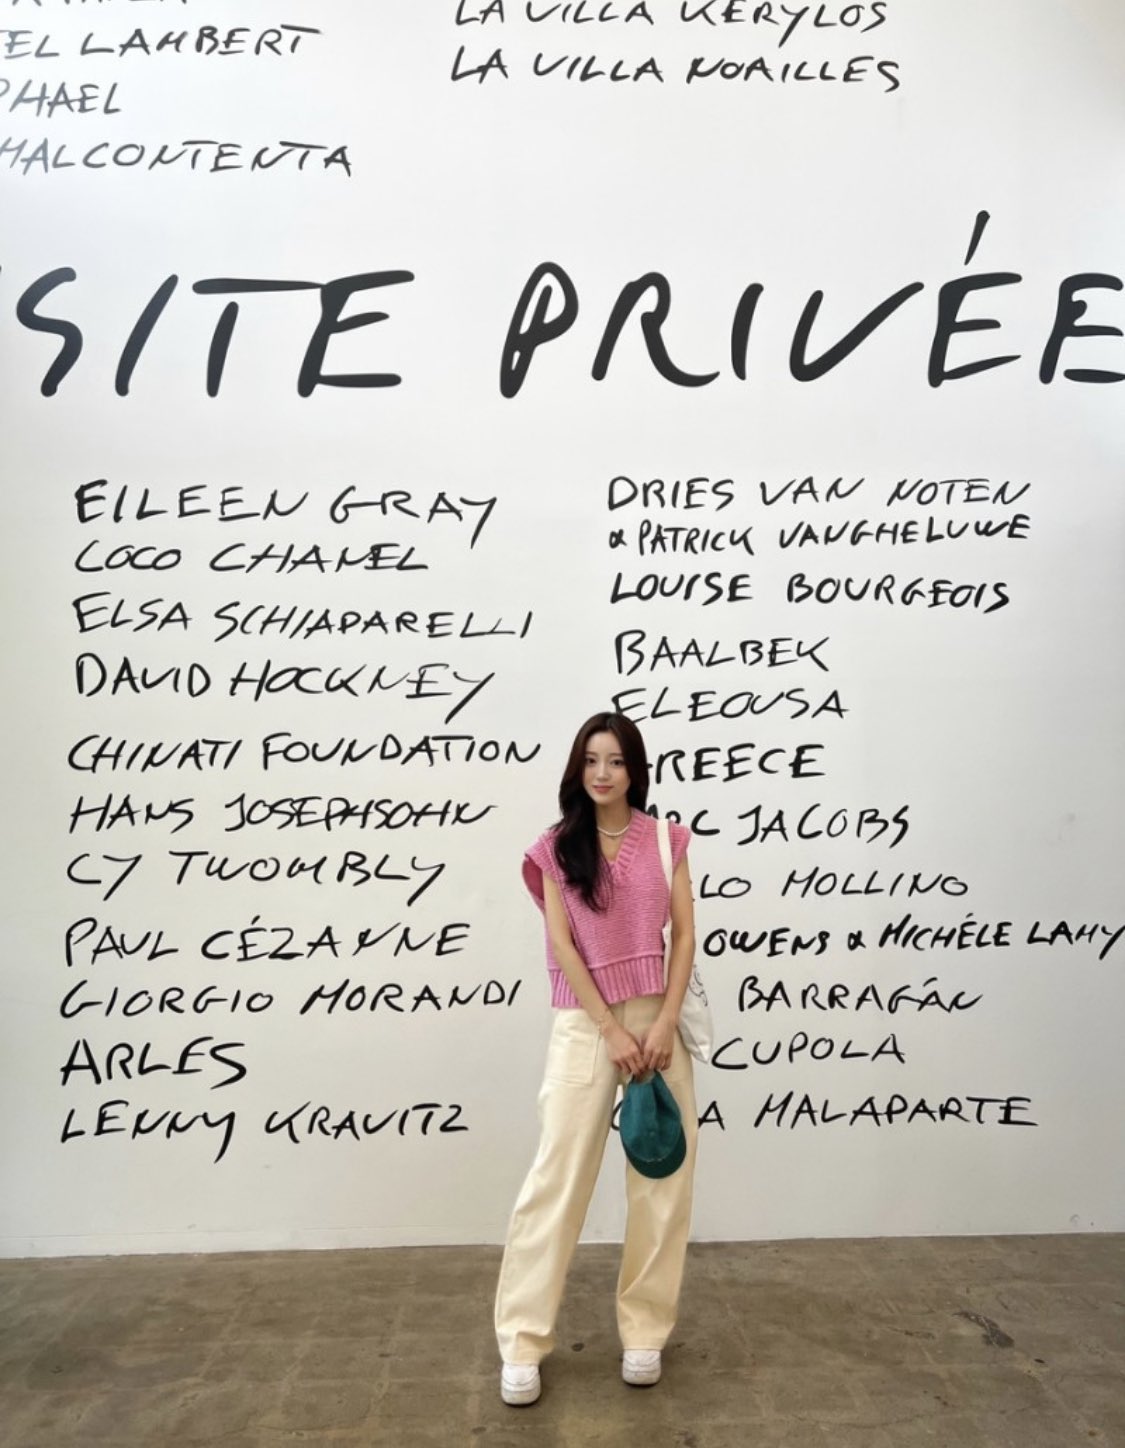 EL LAMBERT
PHAEL
MALCONTENTA
LA VILLA KÉRYLOS
LA VILLA NOAILLES
SITE PRIVÉE
EILEEN GRAY
COCO CHANEL
ELSA SCHIAPARELLI
DAVID HOCKNEY
CHINATI FOUNDATION
HANS JOSEPHSOHN
CY TWOMBLY
PAUL CÉZANNE
GIORGIO MORANDI
ARLES
LENNY KRAVITZ
DRIES VAN NOTEN
& PATRICK VANGHELUWE
LOUISE BOURGEOIS
BAALBEK
ELEOUSA
GREECE
RC JACOBS
LO MOLLINO
OWENS & MICHÉLE LAMY
BARRAGÁN
CUPOLA
A MALAPARTE